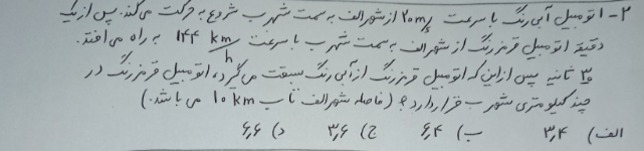 ۲- اتومبیل آبی رنگ با سرعت ۲۰ m/s از شهر الف به سمت شهر ب شروع به حرکت می کند. پس از یک
دقیقه اتومبیل قرمز رنگ از شهر الف به سمت شهر ب با سرعت ۱۴۴ km/h به راه می افتد.
۳۰ ثانیه پس از این که اتومبیل قرمز رنگ از آبی رنگ سبقت می گیرد، اتومبیل قرمز رنگ در
چند کیلومتری شهر ب قرار دارد؟ (فاصله شهر الف تا ب ۱۰ km می باشد.)
الف) ۳٫۴ ب) ۶٫۴ ج) ۳٫۶ د) ۶٫۶